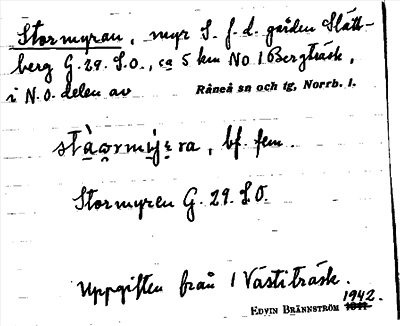 Stormyran, myr S. f. d. gården Slätt-
berg G. 29. S.O., ca 5 km NO 1 Bergträsk,
i N.O. delen av Råneå sn och tg, Norrb. l.
bf. fem.
Stormyren G. 29. S.O.
Uppgiften från 1 Västiträsk.
1942.
EDVIN BRÄNNSTRÖM 1941